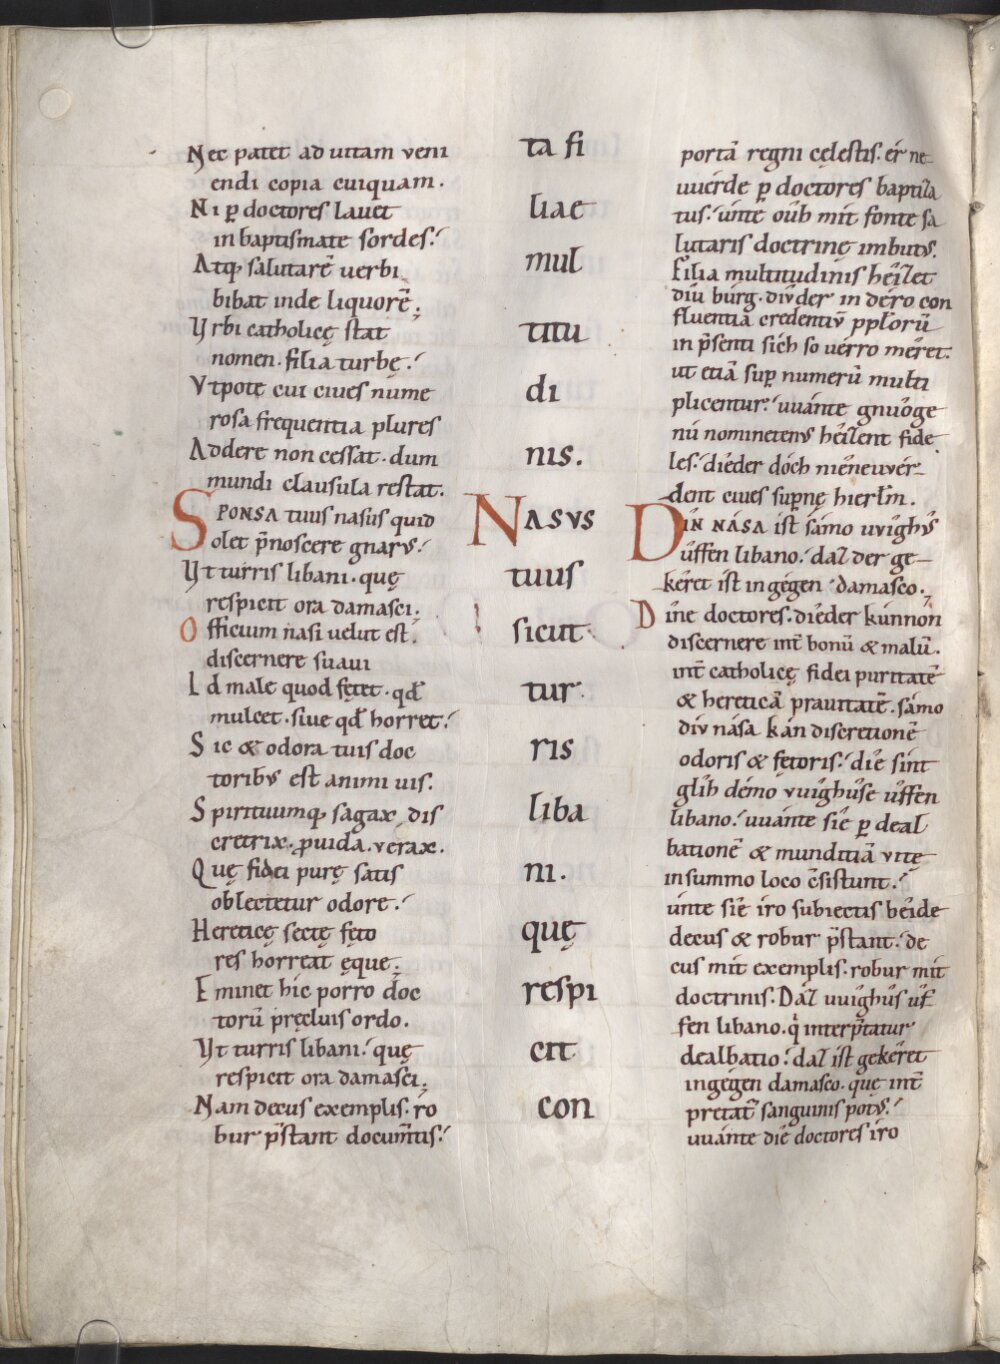 Nec patet ad uitam veni
endi copia cuiquam.
Ni ꝑ doctores lauet
in baptismate sordes.
Atqꝫ salutarē uerbi
bibat inde liquorē;
Vrbi catholicę stat
nomen. filia turbę.
Vtpote cui ciues nume
rosa frequentia plures
Addere non cessat. dum
mundi clausula restat.
SPONSA tuus nasus quid
olet p̄noscere gnarus.
Vt turris libani. quę
respicit ora damasci;
Officium nasi uelut est.
discernere suaui
Id male quod fętet. qđ
mulcet. siue qđ horret.
Sic & odora tuis doc
toribus est animi uis.
Spirituumqꝫ sagax dis
cretrix. ꝓuida. verax.
Quę fidei purę satis
oblectetur odore.
Hereticę sectę fęto
res horreat ęque.
Eminet hic porro doc
torū pręcluis ordo.
Vt turris libani. quę
respicit ora damasci;
Nam decus exemplis. ro
bur p̄stant docum̄tis.
ta fi
liae
mul
titu
di
nis.
NASVS
tuus
sicut
tur
ris
liba
ni.
quę
respi
cit
con
portā regni cęlestis. ér ne
uuérde ꝑ doctores baptiza
tus. únte oūh mit fonte sa
lutaris doctrinę imbutus.
Filia multitudinis héizet
diu búrg. dívder in déro con
fluentia credentiū pplorū
in p̄senti sich so uérro méret.
ut etiā suꝑ numerū multi
plicentur. uuánte gnuōge
nū nominetenus héizent fide
les. díeder dóch niéneuvér
dent ciues suꝑnę hierlm̄.
DIN NÁSA ist sámo uvighus
uffen libano. daz der ge
kéret ist in gégen damasco;
Dine doctores. diéder kúnnon
discernere int̄ bonū & malū.
int̄ catholicę fidei puritatē
& hereticā prauitatē. sámo
div nása kan discretionē
odoris & fętoris. die sint
glih démo vuighuse uffen
libano. uuánte sie ꝑ deal
bationē & munditiā vitę
in summo loco c̄sistunt.
únte sie íro subiectis béide
decus & robur p̄stant. de
cus mit exemplis. robur mit
doctrinis. Dáz uuighus uf
fen libano. q̇ interp̄tatur
dealbatio. daz ist gekéret
ingégen damasco. quę int̄
pretat̄ sanguinis potus.
uuánte die doctores íro